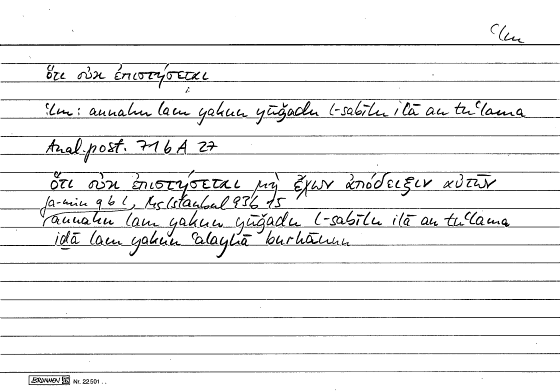 ʿlm
ὅτι οὐκ ἐπιστήσεται
ʿlm: annahu lam yakun yūǧadu l-sabīlu ilā an tuʿlama
Anal. post. 71 b A 27
ὅτι οὐκ ἐπιστήσεται μὴ ἔχων ἀπόδειξιν αὐτῶν
fa-min qbl, Ms Istanbul 936 15
annahu lam yakun yūǧadu l-sabīlu ilā an tuʿlama
iḏā lam yakun ʿalayhā burhānun
BRUNNEN Nr. 22 501 ..